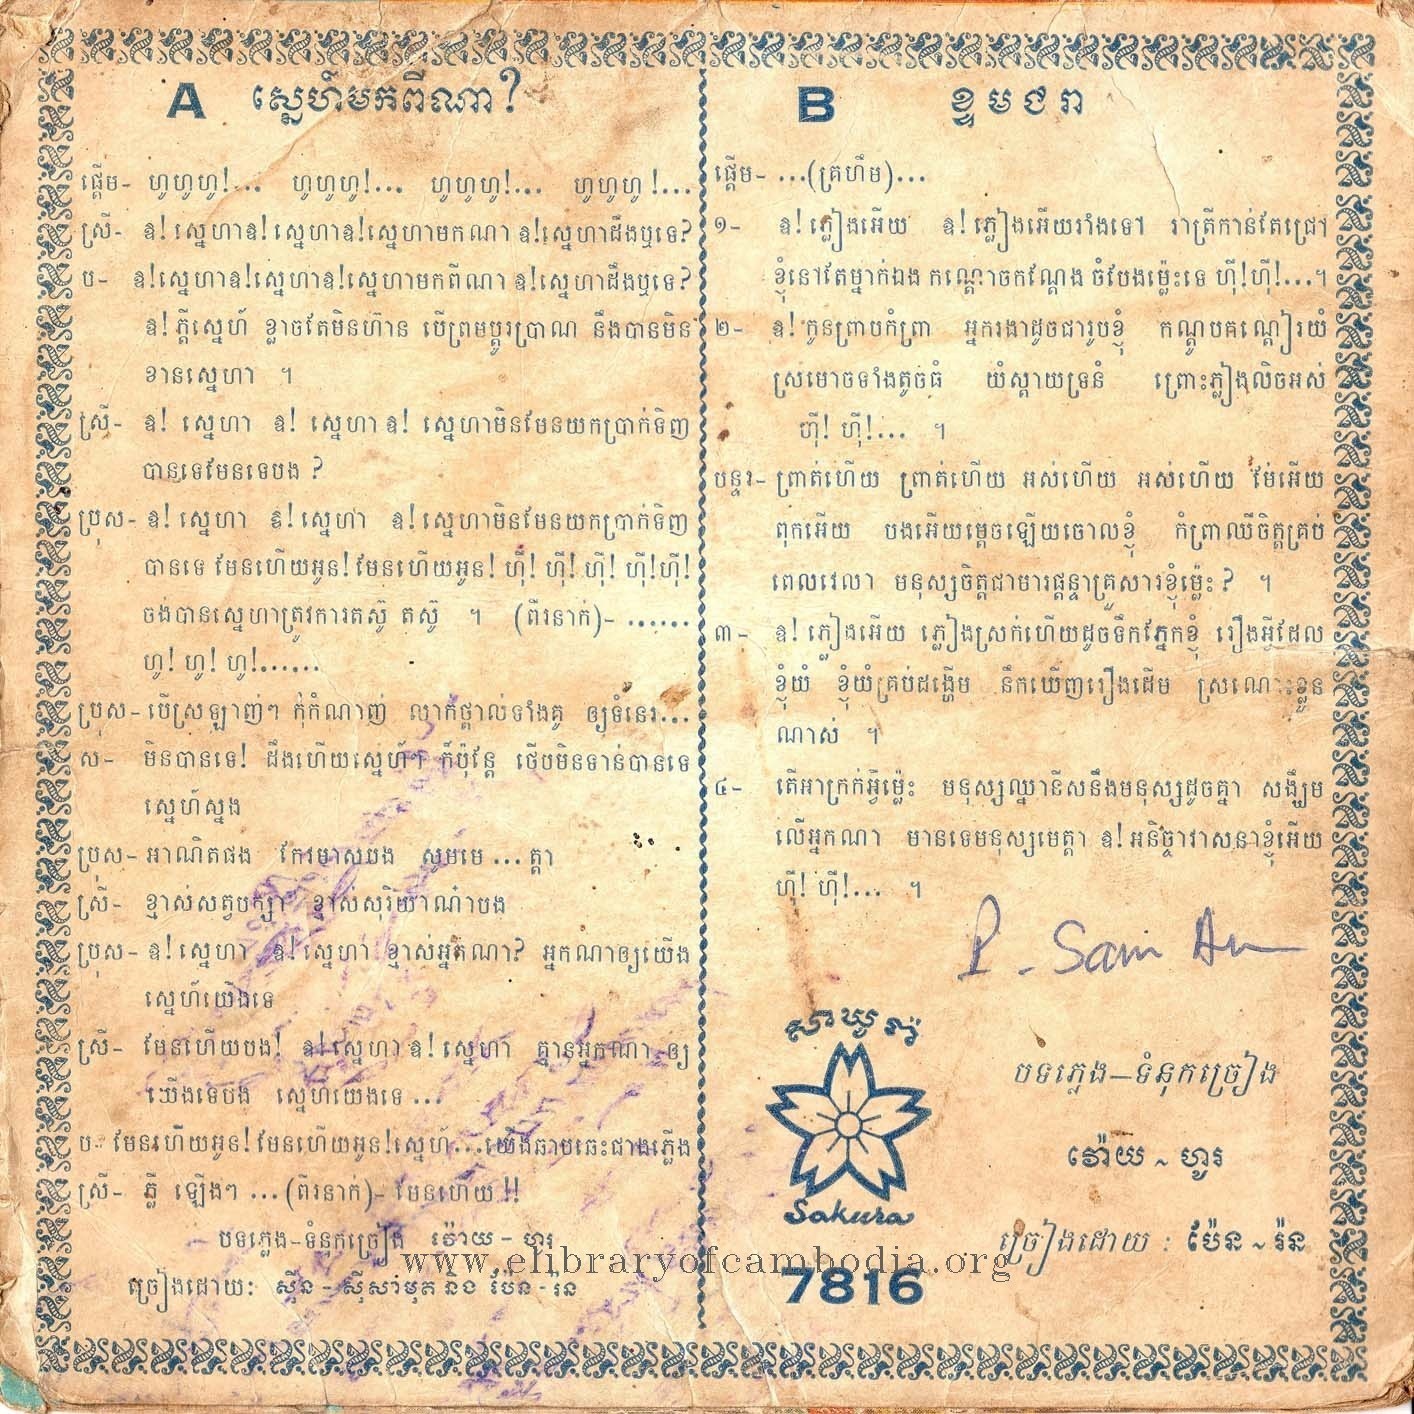 A ស្នេហ៍មកពីណា?
ផ្ដើម- ហូហូហូ!... ហូហូហូ!... ហូហូហូ!... ហូហូហូ!...
ស្រី- ឧ! ស្នេហាឧ! ស្នេហាឧ!ស្នេហាមកណា ឧ!ស្នេហាដឹងឬទេ?
ប- ឧ!ស្នេហាឧ!ស្នេហាឧ!ស្នេហាមកពីណា ឧ!ស្នេហាដឹងឬទេ?
ឧ! ក្ដីស្នេហ៍ ខ្លាចតែមិនហ៊ាន បើព្រមប្ដូរប្រាណ នឹងបានមិន
ខានស្នេហា ។
ស្រី- ឧ! ស្នេហា ឧ! ស្នេហា ឧ! ស្នេហាមិនមែនយកប្រាក់ទិញ
បានទេមែនទេបង ?
ប្រុស- ឧ! ស្នេហា ឧ! ស្នេហា ឧ! ស្នេហាមិនមែនយកប្រាក់ទិញ
បានទេ មែនហើយអូន! មែនហើយអូន! ហ៊ី! ហ៊ី! ហ៊ី! ហ៊ី!ហ៊ី!
ចង់បានស្នេហាត្រូវការតស៊ូ តស៊ូ ។ (ពីរនាក់)- ......
ហូ! ហូ! ហូ!......
ប្រុស- បើស្រឡាញ់ៗ កុំកំណាញ់ លាក៍ថ្ពាល់ទាំងគូ ឲ្យទំនេរ...
ស- មិនបានទេ! ដឹងហើយស្នេហ៍ៗ ក៏ប៉ុន្តែ ថើបមិនទាន់បានទេ
ស្នេហ៍ស្នង
ប្រុស- អាណិតផង កែវមាសបង សូមមេ...ត្តា
ស្រី- ខ្មាស់សត្វបក្សា ខ្មាស់សុរិយាណ៎ាបង
ប្រុស- ឧ! ស្នេហា ឧ! ស្នេហា ខ្មាស់អ្នកណា? អ្នកណាឲ្យយើង
ស្នេហ៍យើងទេ
ស្រី- មែនហើយបង! ឧ!ស្នេហា ឧ! ស្នេហា គ្មានអ្នកណា ឲ្យ
ឃើងទេបង ស្នេហ៍យើងទេ ...
ប- មែនហើយអូន! មែនហើយអូន! ស្នេហ៍...យើងឆាបឆេះជាងភ្លើង
ស្រី- ភ្លឺ ឡើងៗ ...(ពីរនាក់)- មែនហើយ !!
បទភ្លេង-ទំនុកច្រៀង វ៉ោយ - ហូរ
ច្រៀងដោយ: ស៊ីន - ស៊ីសាមុត និង ប៉ែន - រ៉ន
B ខ្ទមជរា
ផ្ដើម- ...(គ្រហឹម)...
១- ឧ! ភ្លៀងអើយ ឧ! ភ្លៀងអើយរាំងទៅ រាត្រីកាន់តែជ្រៅ
ខ្ញុំនៅតែម្នាក់ឯង កណ្ដោចកណ្ដែង ចំបែងម្ល៉េះទេ ហ៊ី!ហ៊ី!...។
២- ឧ! កូនព្រាបកំព្រា អ្នករងាដូចជារូបខ្ញុំ កណ្ដូបគណ្ដៀរយំ
ស្រមោចទាំងតូចធំ យំស្ដាយទ្រនំ ព្រោះភ្លៀងលិចអស់
ហ៊ី! ហ៊ី!... ។
បន្ទរ- ព្រាត់ហើយ ព្រាត់ហើយ អស់ហើយ អស់ហើយ ម៉ែអើយ
ពុកអើយ បងអើយម្ដេចឡើយចោលខ្ញុំ កំព្រាឈឺចិត្តគ្រប់
ពេលវេលា មនុស្សចិត្តជាមារផ្ដន្ទាគ្រួសារខ្ញុំម្ល៉េះ? ។
៣- ឧ! ភ្លៀងអើយ ភ្លៀងស្រក់ហើយដូចទឹកភ្នែកខ្ញុំ រឿងអ្វីដែល
ខ្ញុំយំ ខ្ញុំយំគ្រប់ដង្ហើម នឹកឃើញរឿងដើម ស្រណោះខ្លួន
ណាស់ ។
៤- តើអាក្រក់អ្វីម្ល៉េះ មនុស្សឈ្នានីសនឹងមនុស្សដូចគ្នា សង្ឃឹម
លើអ្នកណា មានទេមនុស្សមេត្តា ឧ! អនិច្ចាវាសនាខ្ញុំអើយ
ហ៊ី! ហ៊ី!... ។
បទភ្លេង—ទំនុកច្រៀង
វ៉ោយ ~ ហូរ
ច្រៀងដោយ : ប៉ែន ~ រ៉ន
Sakura
7816
www.elibraryofcambodia.org